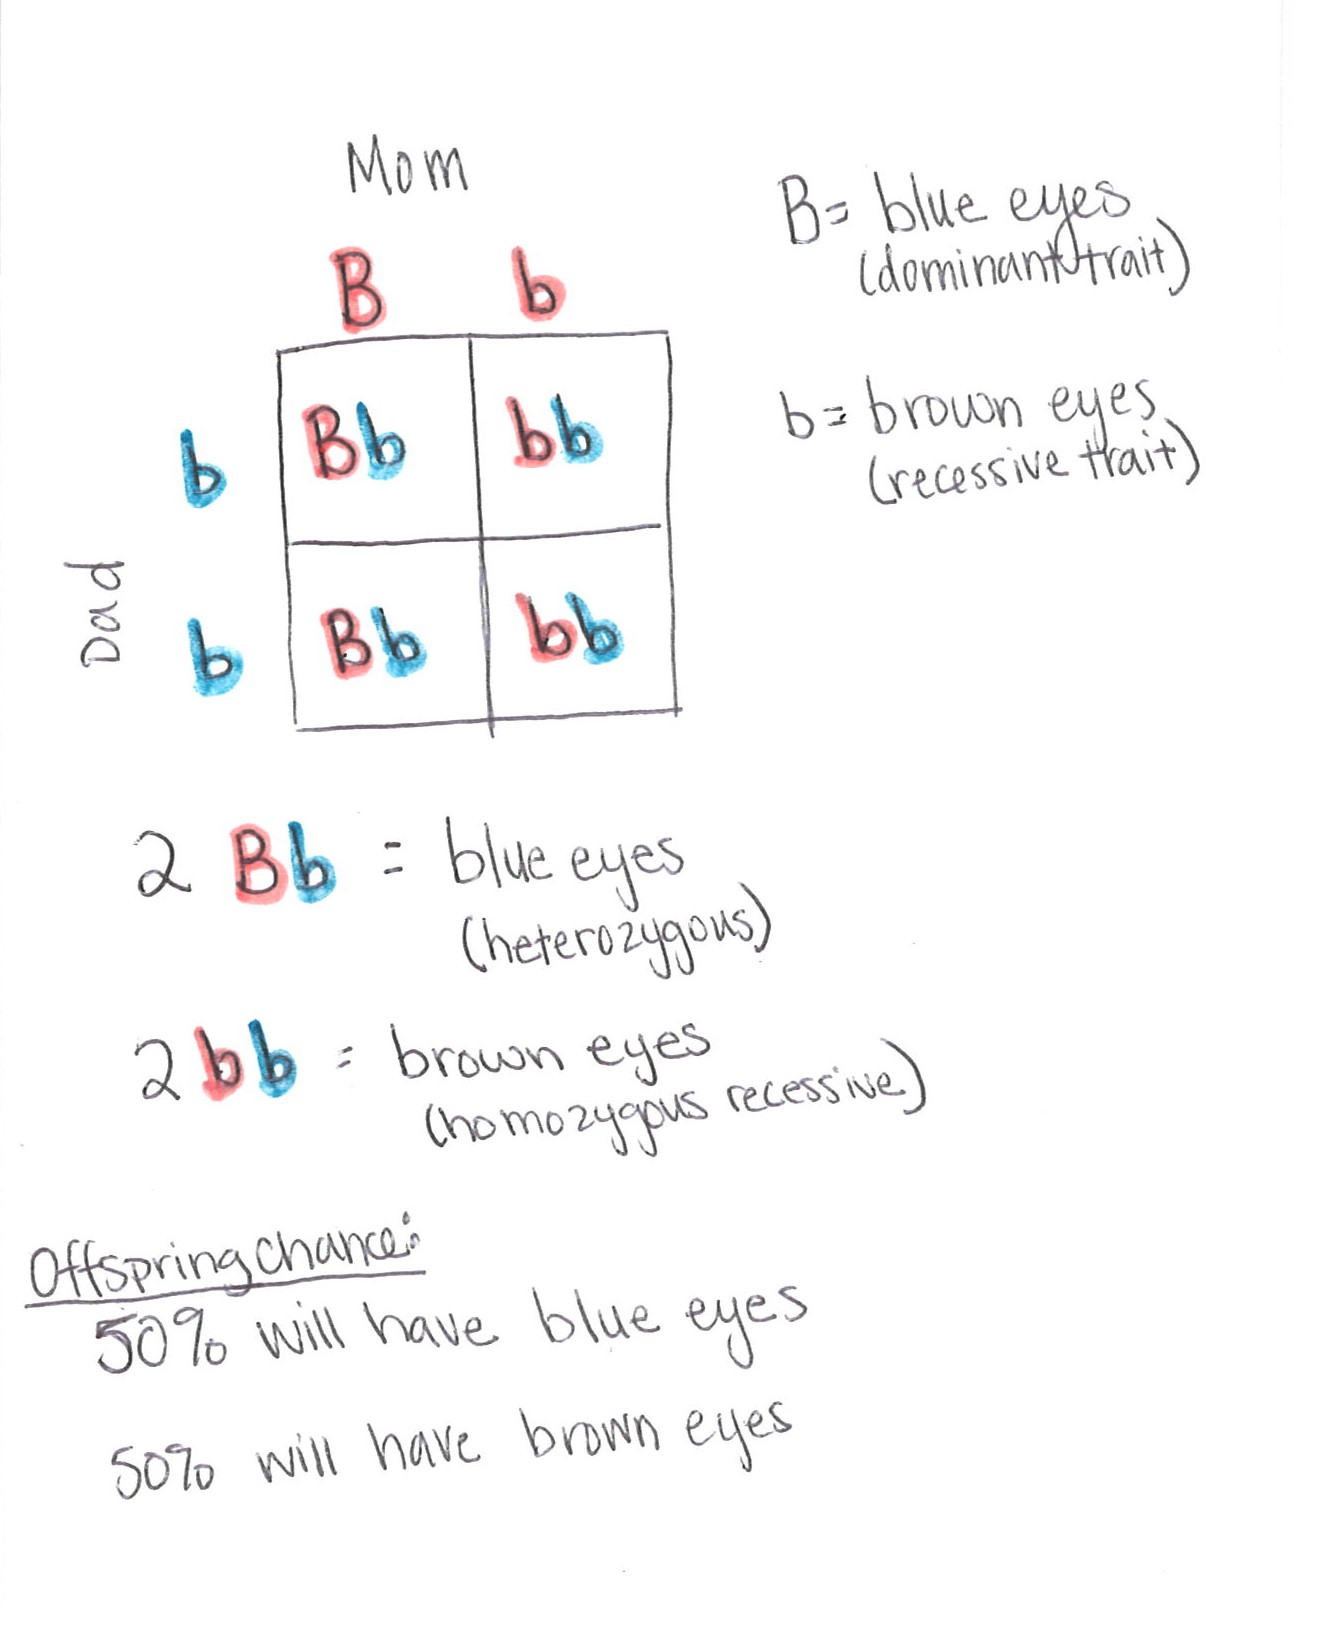 Mom
B b
B= blue eyes
(dominant trait)
b Bb bb
b= brown eyes
(recessive trait)
Dad
b Bb bb
2 Bb = blue eyes
(heterozygous)
2 bb = brown eyes
(homozygous recessive)
Offspring chance:
50% will have blue eyes
50% will have brown eyes